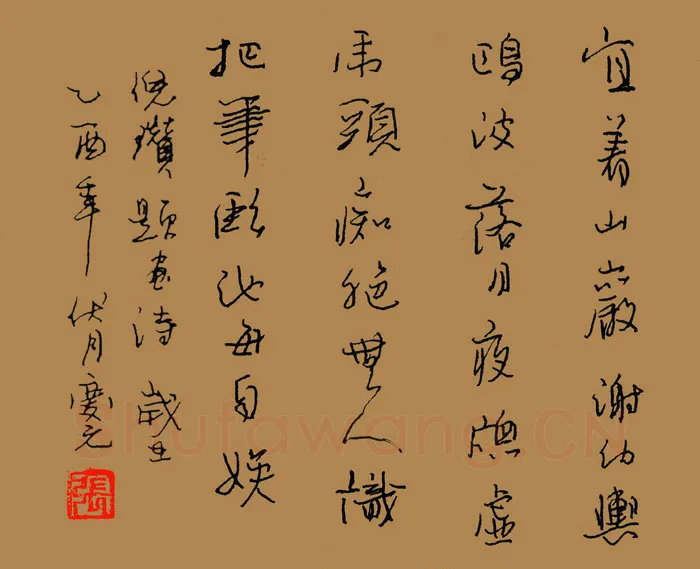 宜着山巖謝幼輿
鷗波落月夜牕虛
虎頭痴絕無人識
把筆臨池每自娛
倪瓚題畫詩 歲在
乙酉年 伏月慶元
張
Shufawang.CN